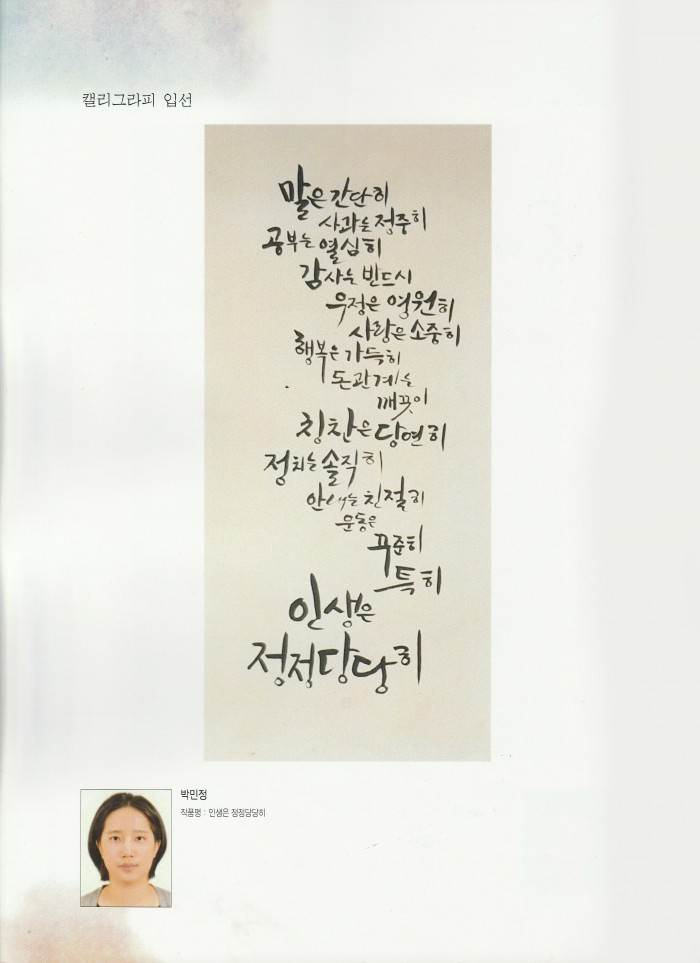 캘리그라피 입선
말은 간단히
사과는 정중히
공부는 열심히
감사는 반드시
우정은 영원히
사랑은 소중히
행복은 가득히
돈관계는
깨끗이
칭찬은 당연히
정치는 솔직히
안내는 친절히
운동은
꾸준히
특히
인생은
정정당당히
박민정
작품명 : 인생은 정정당당히